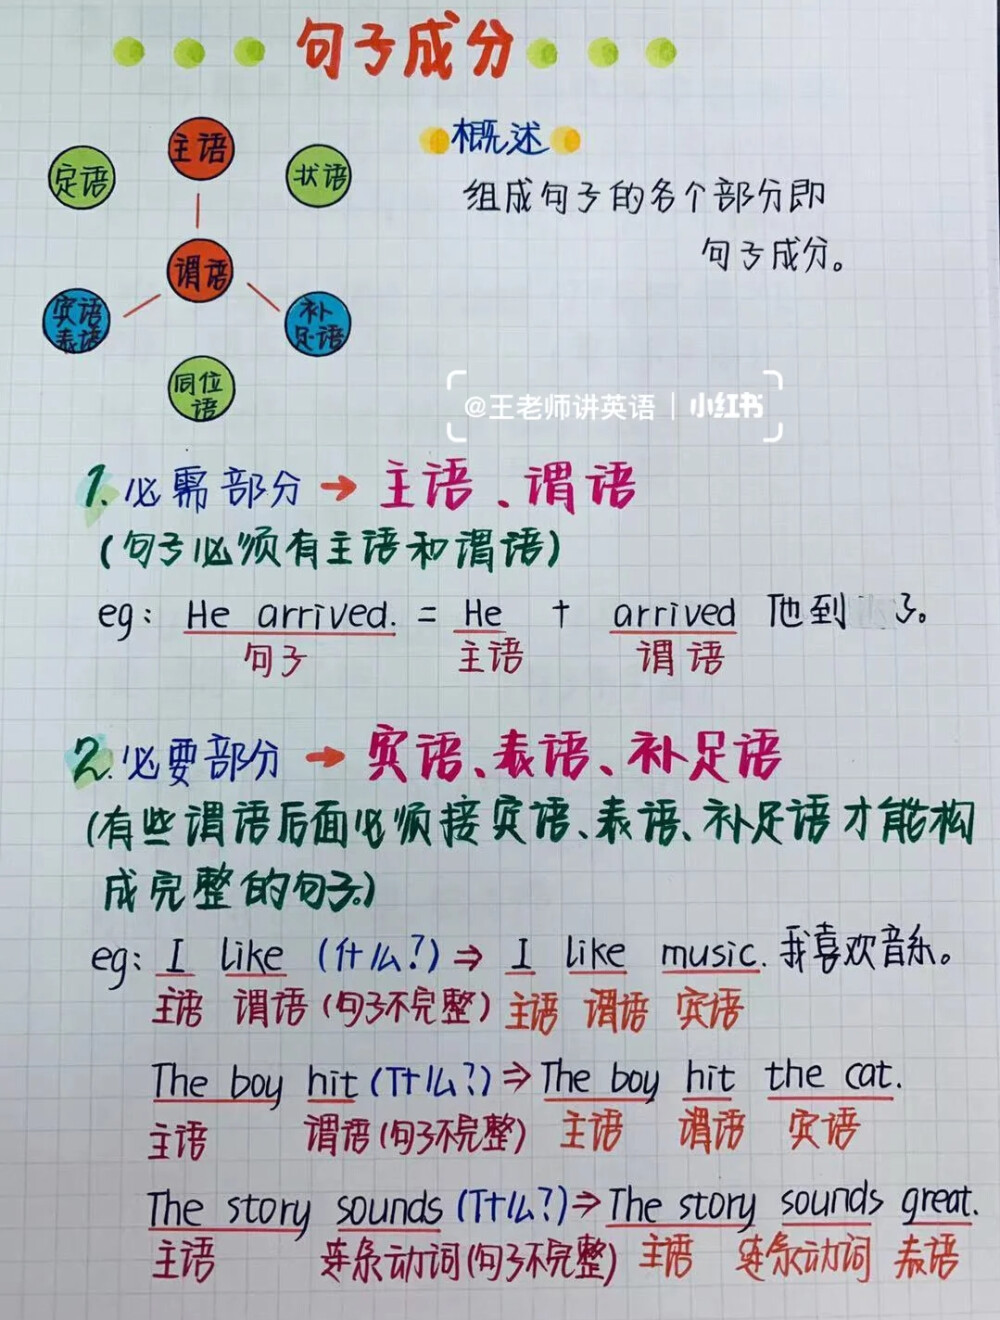 句子成分
主语
定语
状语
谓语
宾语
表语
补
足语
同位
语
概述
组成句子的各个部分即
句子成分。
@王老师讲英语 | 小红书
1.必需部分→主语、谓语
(句子必须有主语和谓语)
eg: He arrived. = He + arrived 他到 了。
句子 主语 谓语
2.必要部分→宾语、表语、补足语
(有些谓语后面必须接宾语、表语、补足语才能构
成完整的句子。)
eg: I like (什么?)⇒ I like music. 我喜欢音乐。
主语 谓语 (句子不完整) 主语 谓语 宾语
The boy hit (什么?)⇒ The boy hit the cat.
主语 谓语 (句子不完整) 主语 谓语 宾语
The story sounds (什么?)⇒ The story sounds great.
主语 连系动词 (句子不完整) 主语 连系动词 表语